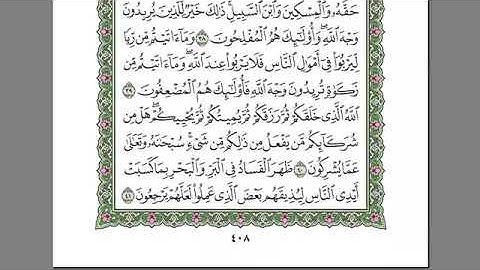 حَقَّهُۥ وَٱلْمِسْكِينَ وَٱبْنَ ٱلسَّبِيلِ ذَٰلِكَ خَيْرٌ لِّلَّذِينَ يُرِيدُونَ
وَجْهَ ٱللَّهِ وَأُو۟لَٰٓئِكَ هُمُ ٱلْمُفْلِحُونَ ٣٨ وَمَآ ءَاتَيْتُم مِّن رِّبًا
لِّيَرْبُوَا۟ فِىٓ أَمْوَٰلِ ٱلنَّاسِ فَلَا يَرْبُوا۟ عِندَ ٱللَّهِ وَمَآ ءَاتَيْتُم مِّن
زَكَوٰةٍ تُرِيدُونَ وَجْهَ ٱللَّهِ فَأُو۟لَٰٓئِكَ هُمُ ٱلْمُضْعِفُونَ ٣٩
ٱللَّهُ ٱلَّذِى خَلَقَكُمْ ثُمَّ رَزَقَكُمْ ثُمَّ يُمِيتُكُمْ ثُمَّ يُحْيِيكُمْ هَلْ مِن
شُرَكَآئِكُم مَّن يَفْعَلُ مِن ذَٰلِكُم مِّن شَىْءٍ سُبْحَٰنَهُۥ وَتَعَٰلَىٰ
عَمَّا يُشْرِكُونَ ٤٠ ظَهَرَ ٱلْفَسَادُ فِى ٱلْبَرِّ وَٱلْبَحْرِ بِمَا كَسَبَتْ
أَيْدِى ٱلنَّاسِ لِيُذِيقَهُم بَعْضَ ٱلَّذِى عَمِلُوا۟ لَعَلَّهُمْ يَرْجِعُونَ ٤١
٤٠٨